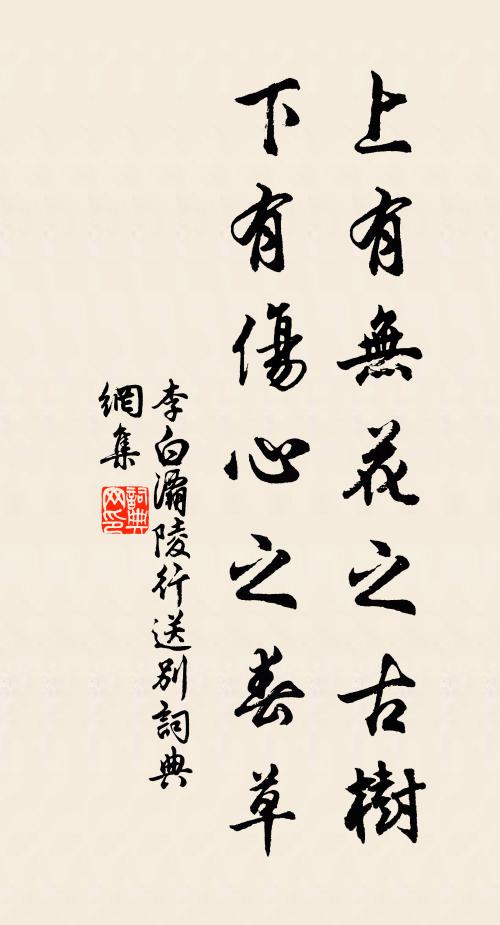 上有無花之古樹
下有傷心之春草
李白灞陵行送別詞典
網集
詞典
网印